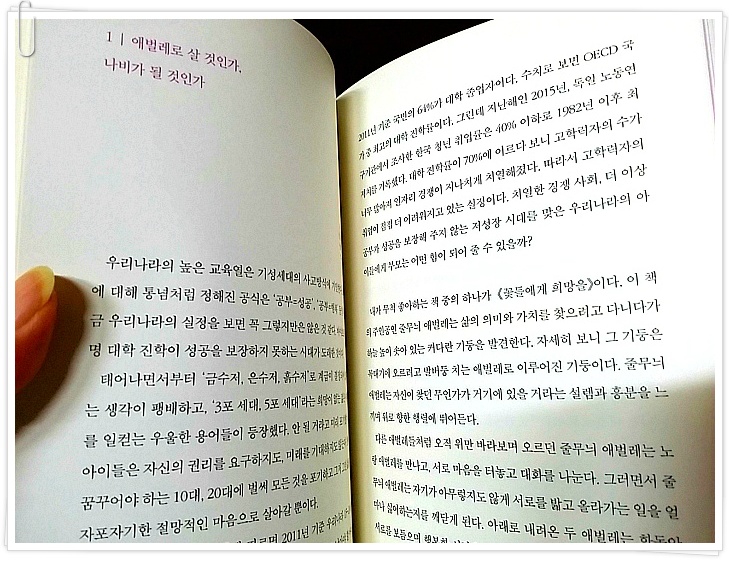 1 | 애벌레로 살 것인가,
나비가 될 것인가
우리나라의 높은 교육열은 기성세대의 사고방식에
에 대해 통념처럼 정해진 공식은 '공부=성공', '공부=행복'
금 우리나라의 실정을 보면 꼭 그렇지만은 않은 것 같다.
명 대학 진학이 성공을 보장하지 못하는 시대가 도래한
태어나면서부터 '금수저, 은수저, 흙수저'로 계급이
는 생각이 팽배하고, '3포 세대, 5포 세대'라는 희망이 없는
를 일컫는 우울한 용어들이 등장했다. 안 될 거라고 미리
아이들은 자신의 권리를 요구하지도, 미래를 기대하지도
꿈꾸어야 하는 10대, 20대에 벌써 모든 것을 포기하고 그저
자포자기한 절망적인 마음으로 살아갈 뿐이다.
따르면 2011년 기준 우리나라
2011년 기준 국민의 64%가 대학 졸업자이다. 수치로 보면 OECD 국
가 중 최고의 대학 진학률이다. 그런데 지난해인 2015년, 독일 노동연
구기관에서 조사한 한국 청년 취업률은 40% 이하로 1982년 이후 최
저치를 기록했다. 대학 진학률이 70%에 이르다 보니 고학력자의 수가
너무 많아져 일자리 경쟁이 지나치게 치열해졌다. 따라서 고학력자의
취업이 점점 더 어려워지고 있는 실정이다. 치열한 경쟁 사회, 더 이상
공부가 성공을 보장해 주지 않는 저성장 시대를 맞은 우리나라의 아
이들에게 부모는 어떤 힘이 되어 줄 수 있을까?
내가 무척 좋아하는 책 중의 하나가 《꽃들에게 희망을》이다. 이 책
의 주인공인 줄무늬 애벌레는 삶의 의미와 가치를 찾으려고 다니다가
하늘 높이 솟아 있는 커다란 기둥을 발견한다. 자세히 보니 그 기둥은
꼭대기에 오르려고 발버둥 치는 애벌레로 이루어진 기둥이다. 줄무늬
애벌레는 자신이 찾던 무언가가 거기에 있을 거라는 설렘과 흥분을 느
끼며 위로 향한 행렬에 뛰어든다.
다른 애벌레들처럼 오직 위만 바라보며 오르던 줄무늬 애벌레는 노
랑 애벌레를 만나고, 서로 마음을 터놓고 대화를 나눈다. 그러면서 줄
무늬 애벌레는 자기가 아무렇지도 않게 서로를 밟고 올라가는 일을 얼
마나 싫어하는지를 깨닫게 된다. 아래로 내려온 두 애벌레는 한동안
서로를 보듬으며 행복한